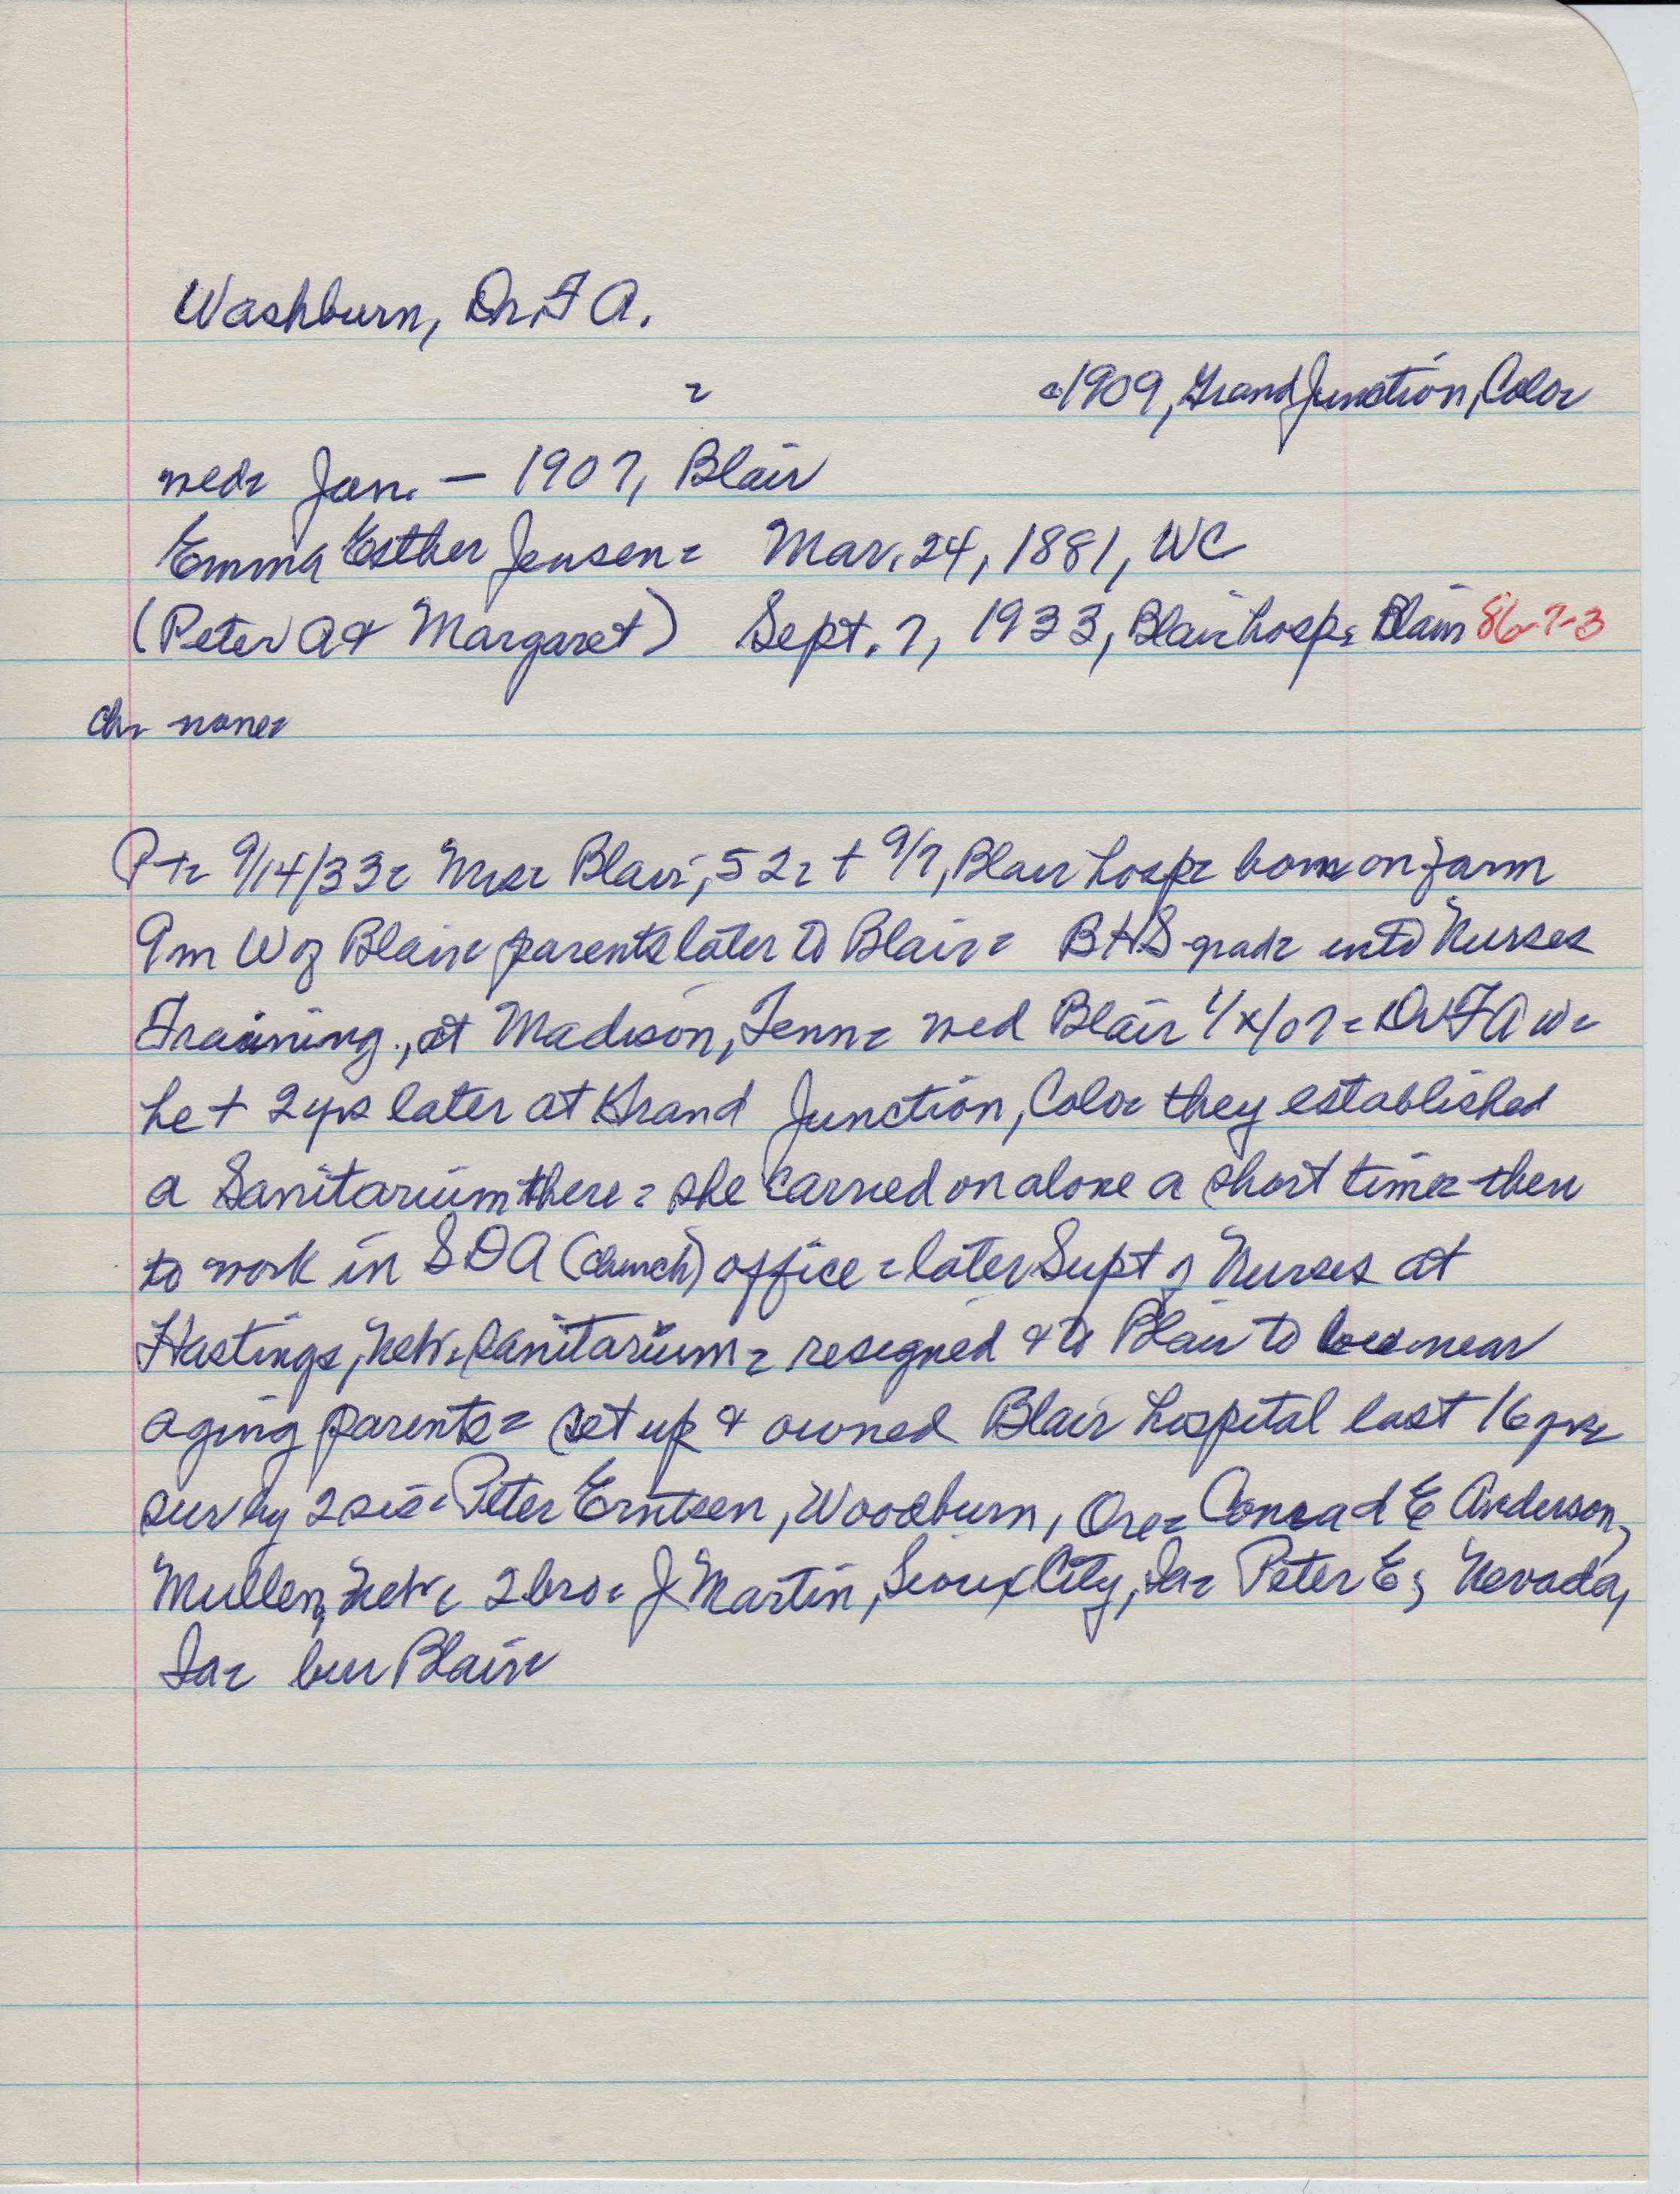 Washburn, Dr F A.
- - 1909, Grand Junction, Colo-
med- Jan. — 1907, Blair
Emma Esther Jensen- Mar. 24, 1881, WC
(Peter A & Margaret) Sept. 7, 1933, Blair hosp- Blair 86-7-3
ch- none-
P t- 9/14/33- Blair, 52- + 9/7, Blair hosp- born on farm
9m W of Blair- parents later to Blair- BHS grad- into Nurses
Training, at Madison, Tenn- med Blair 1/x/07- Dr F A W-
he + 2 yrs later at Grand Junction, Colo- they established
a Sanitarium there- she carried on alone a short time- then
to work in SDA (church) office- later Supt of Nurses at
Hastings, Neb- Sanitarium- resigned & to Blair to be near
aging parents- set up & owned Blair hospital last 16 yrs-
sur by 2 sis- Peter Erntsen, Woodburn, Ore- Conrad E Anderson,
Mullen, Neb- 2 bro- J Martin, Sioux City, Ia- Peter E, Nevada,
Ia- bur Blair-